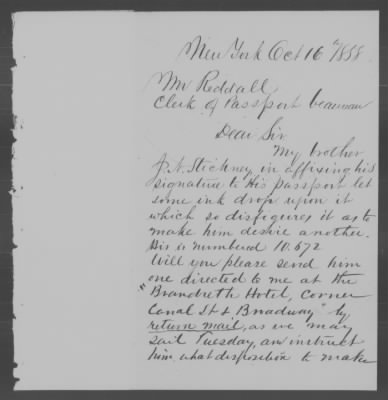 New York Oct 16th 1858
Mr Reddall
Clerk of Passport beaurau
Dear Sir
My brother
J. N. Stickney in affixing his
signature to His passport let
some ink drop upon it
which so disfigures it as to
make him desire another.
His is numbered 10.672
Will you please send him
one directed to me at the
"Brandreth Hotel, corner
Canal St & Broadway" by
return mail, as we may
sail Tuesday, an instruct
him, what disposition to make